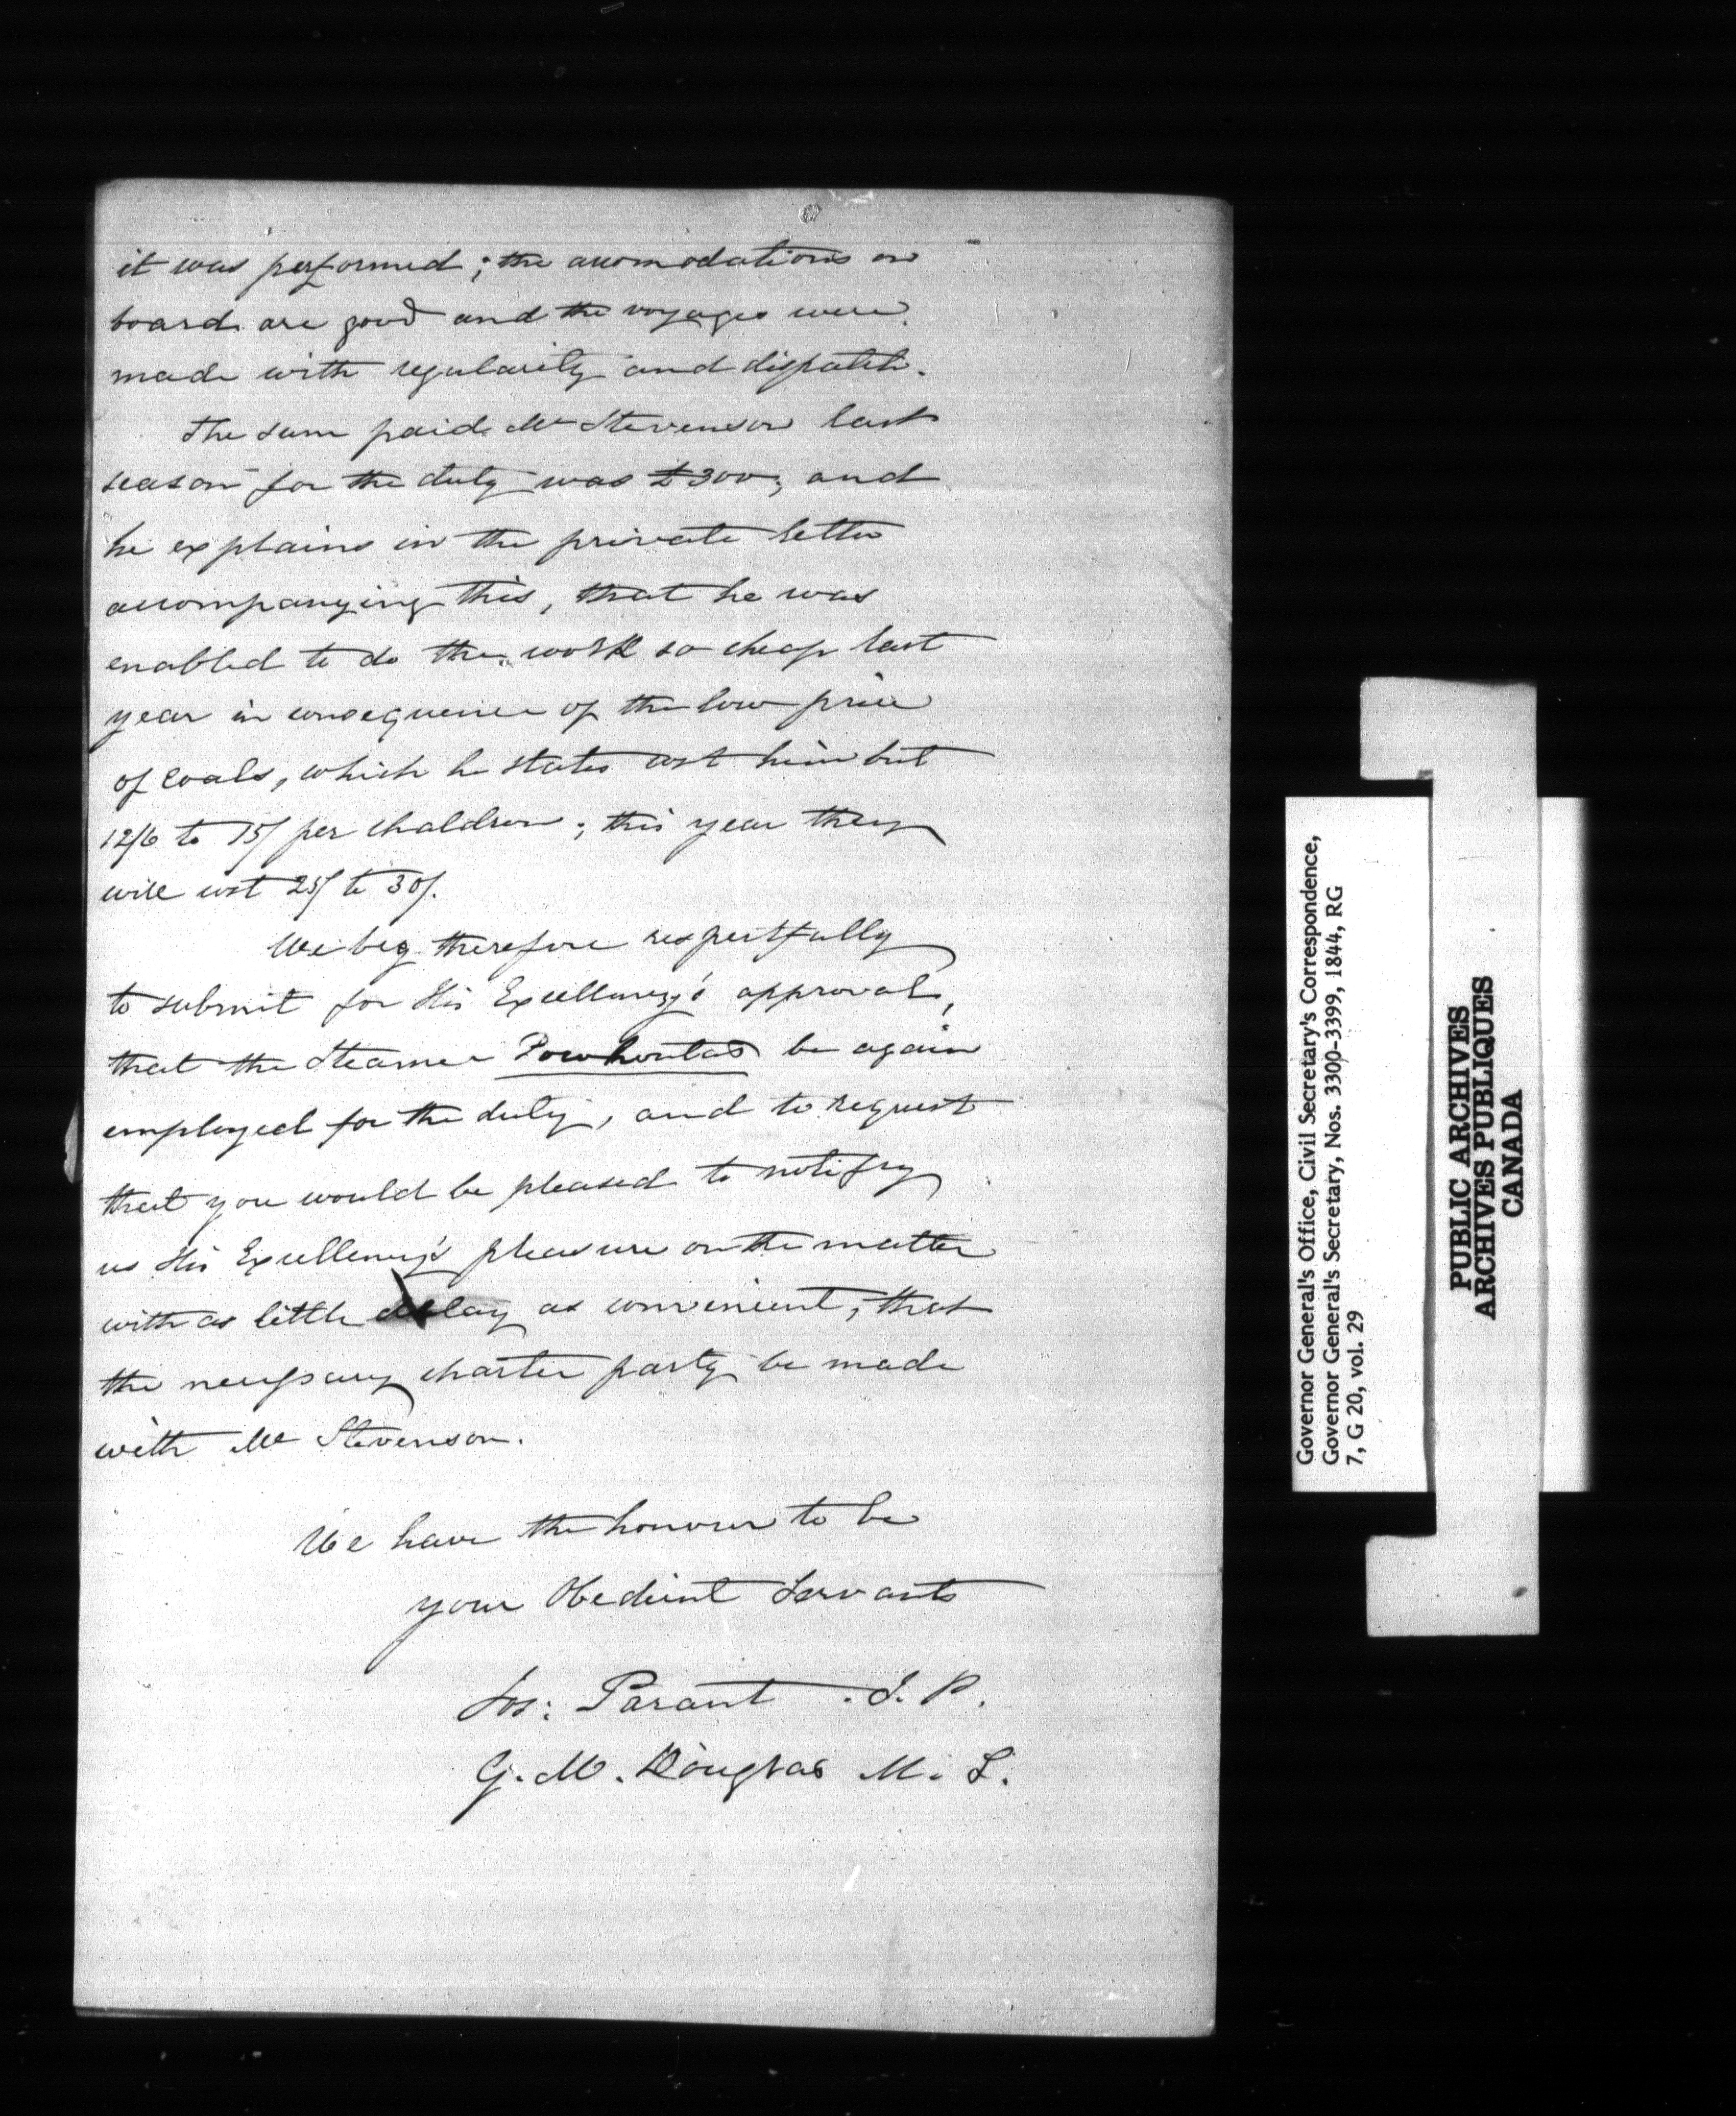 it was performed; the accomodations on
board are good and the voyages were
made with regularity and dispatch.
The sum paid Mr Stevenson last
season for the duty was £300; and
he explains in the private letter
accompanying this, that he was
enabled to do the work so cheap last
year in consequence of the low price
of coals, which he states cost him but
12/6 to 15/ per chaldron; this year they
will cost 25/ to 30/.
We beg therefore respectfully
to submit for His Excellency's approval,
that the Steamer Powhontas be again
employed for the duty, and to request
that you would be pleased to notify
us His Excellency's pleasure on the matter
with as little delay as convenient, that
the necessary charter party be made
with Mr Stevenson.
We have the honour to be
your Obedient Servants
Jos: Parant . I. P.
G. M. Douglas M. S.
Governor General's Office, Civil Secretary's Correspondence,
Governor General's Secretary, Nos. 3300-3399, 1844, RG
7, G 20, vol. 29
PUBLIC ARCHIVES
ARCHIVES PUBLIQUES
CANADA